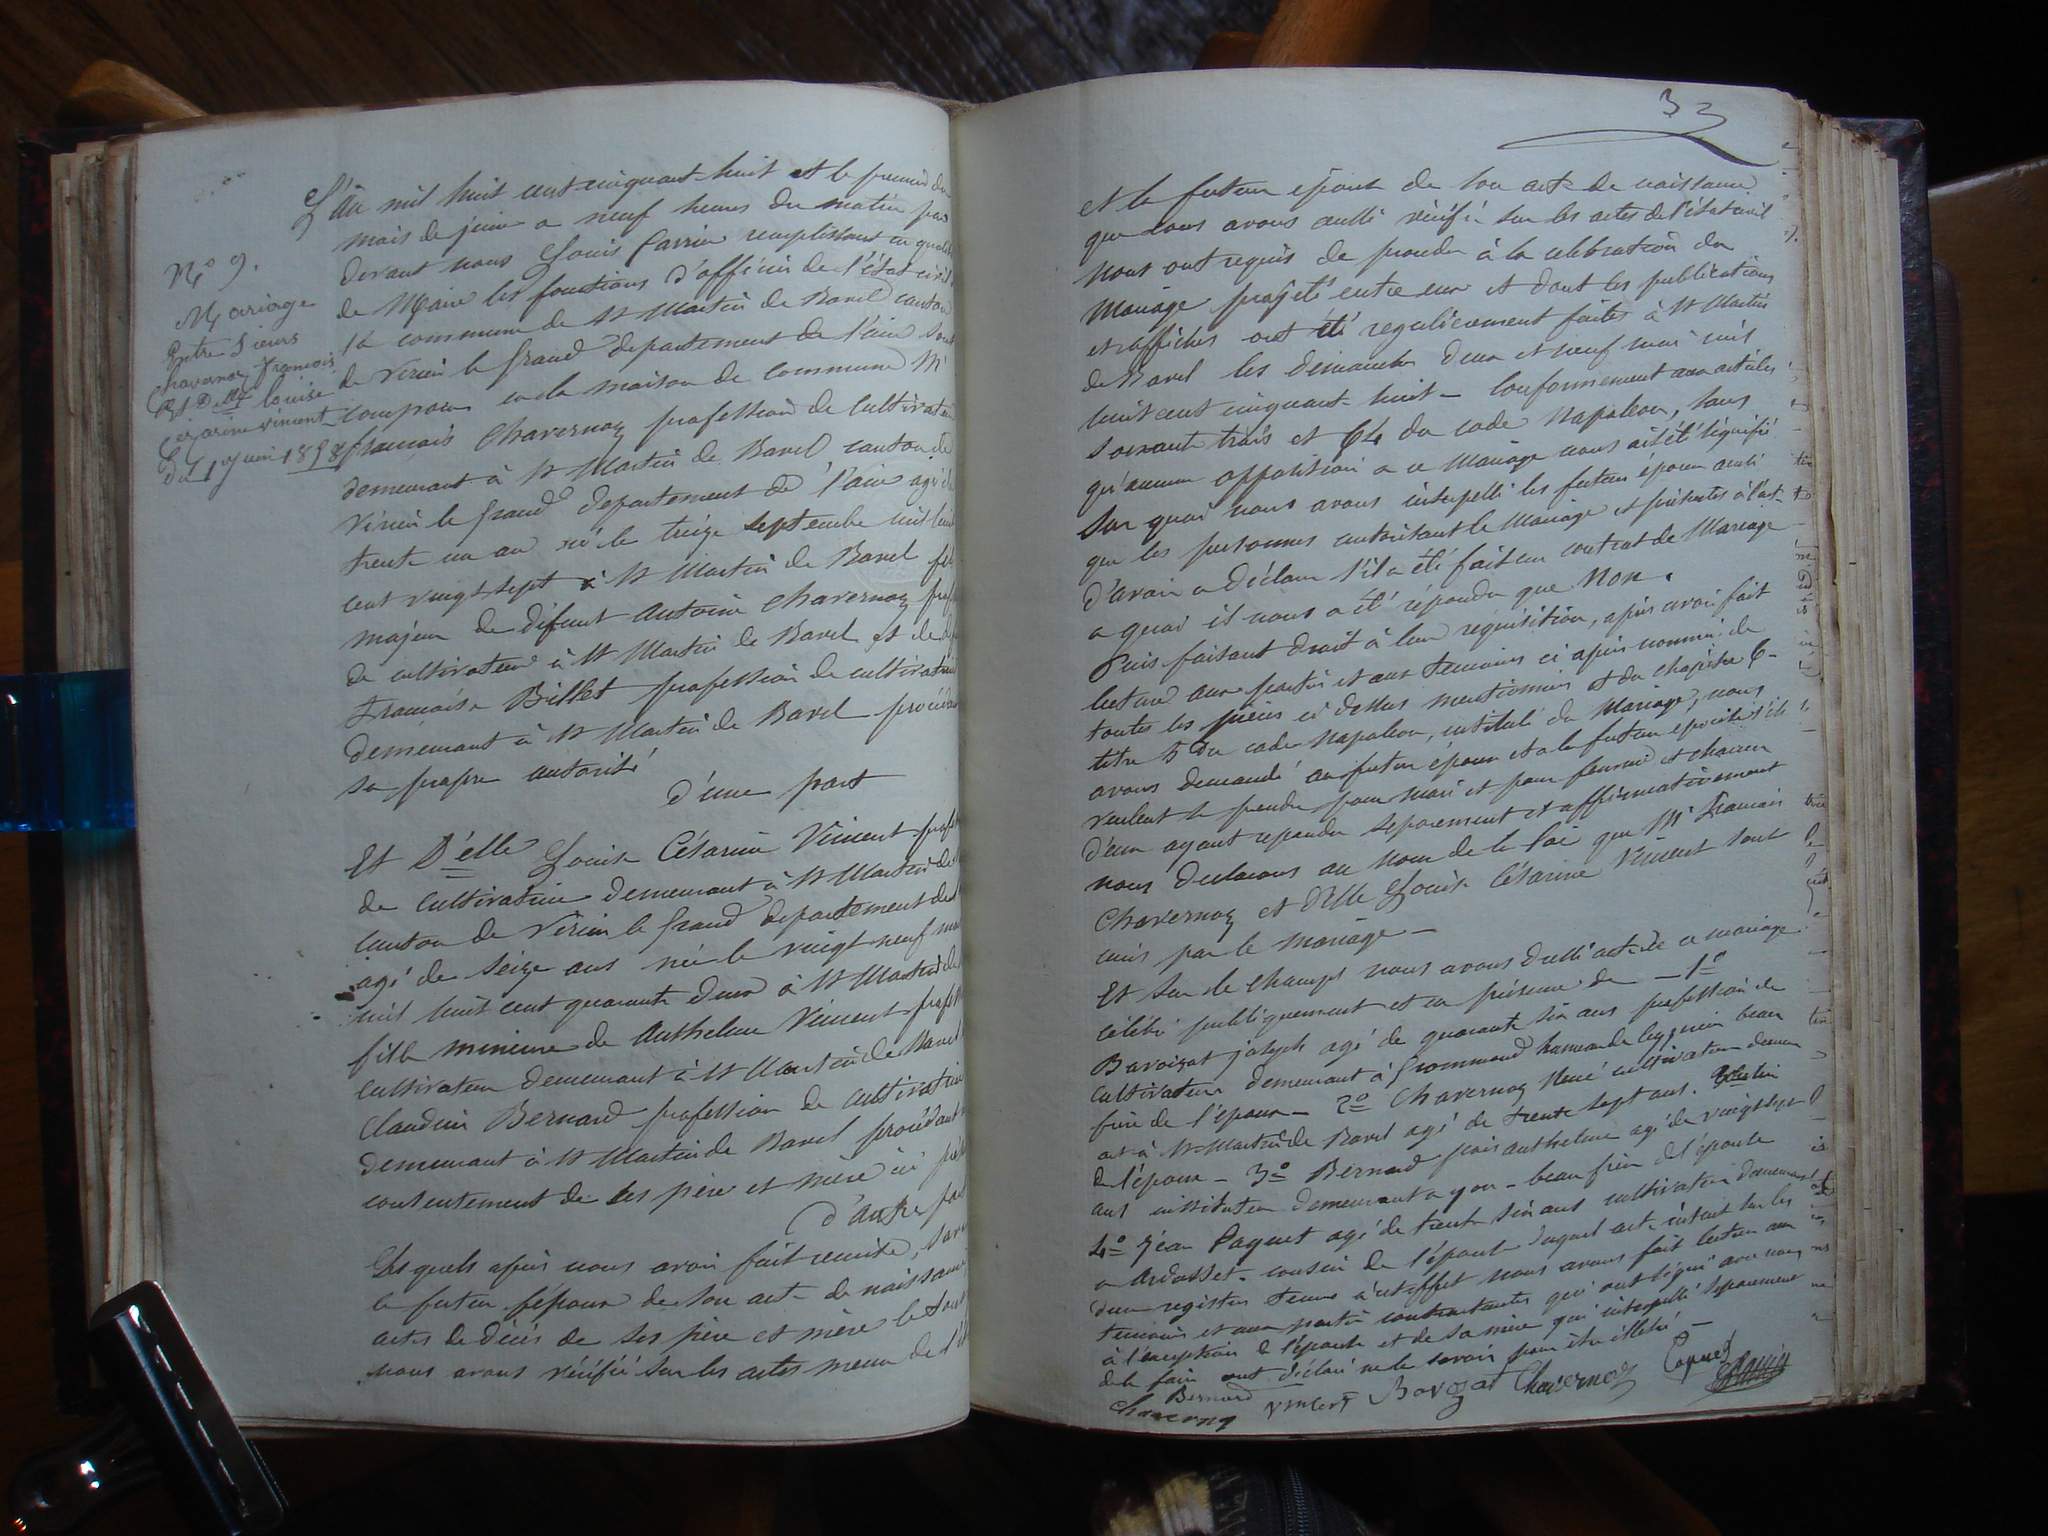 N° 9.
Mariage
Entre Sieurs
Chavernoz François
Et Delle Louise
Cezarine Vincent
du 1er juin 1858
L'an mil huit cent cinquant-huit et le premier du
mois de juin a neuf heures du matin par
devant nous Louis Carrier remplissant en qualité
de Maire les fonctions d'officier de l'état civil
la commune de St Martin de Bavel canton
de Virieu le Grand departement de l'ain sont
comparus en la maison de commune Mr
francois Chavernoz profession de cultivateur
demeurant à St Martin de Bavel canton de
Virieu le Grand departement de l'ain agé de
trente un an né le treize septembre mil huit
cent vingt sept à St Martin de Bavel fils
majeur de défunt Antoine Chavernoz prof
de cultivateur à St Martin de Bavel et de
francoise Billet profession de cultivatrice
demeurant à St Martin de Bavel procédant
sa propre autorité
d'une part
Et Delle Louise Césarine Vincent prof
de cultivatrice demeurant à St Martin de
canton de Virieu le Grand departement de
agé de seize ans née le vingt neuf
mil huit cent quarante deux à St Martin de
fille mineure de Anthelme Vincent prof
cultivateur demeurant à St Martin de Bavel
Claudine Bernard profession de cultivatrice
demeurant à St Martin de Bavel procédant
consentement de ses père et mère ici
d'autre part
Les quels après nous avoir fait remise, Savoir
le futur époux de son acte de naissance
actes de décès de ses père et mère le tout
nous avons vérifié sur les actes meme de l'
33
et la future épouse de son acte de naissance
que nous avons aussi vérifié sur les actes de l'état civil
Nous ont requis de proceder à la celebration du
Mariage projeté entre eux et dont les publications
et affiches ont été regulierement faites à St Martin
de Bavel les dimanches deux et neuf mai mil
huit cent cinquant-huit - Conformement aux articles
soixante trois et 64 du code Napoleon, sans
qu'aucune opposition a ce Mariage nous ait été signifié
Sur quoi nous avons interpellé les futurs époux aussi
que les personnes autorisant le Mariage et présentes à l'acte
d'avoir a déclarer s'il a été fait un contrat de Mariage
a quoi il nous a été répondu que Non.
Puis faisant droit à leur requisition, après avoir fait
lecture aux parties et aux temoins ci après nommés de
toutes les pièces ci dessus mentionnées et du chapitre 6
titre 5 du code Napoleon, intitulé du Mariage, nous
avons demandé au futur époux et a la future épouse s'ils
veulent se prendre pour mari et pour femme et chacun
d'eux ayant repondu séparement et affirmativement
nous declarons au nom de la loi que Mr Francois
Chavernoz et Delle Louise Césarine Vincent sont
unis par le mariage -
Et sur le champs nous avons dressé acte de ce mariage
célébré publiquement et en présence de - 1°
Bavozat joseph agé de quarante six ans profession de
cultivateur demeurant à Grommend hameau de beau
frère de l'époux - 2° Chavernoz René cultivateur demeur
ant à St Martin de Bavel agé de trente sept ans.
de l'époux - 3° Bernard anthelme agé de vingt sept
ans instituteur demeurant a yon - beau frère de l'épouse
4° Jean Paquet agé de trente six ans cultivateur demeurant
a Ardosset - cousin de l'épouse duquel acte inscrit sur les
deux registres tenus à cet effet nous avons fait lecture aux
temoins et aux parties contractantes qui ont signé avec nous
à l'exception de l'épouse et de sa mère qui interpellé séparement
de le faire ont déclaré ne le savoir pour être illetré -
Bernard Vincent Bavozat Chavernoz
Chavernoz